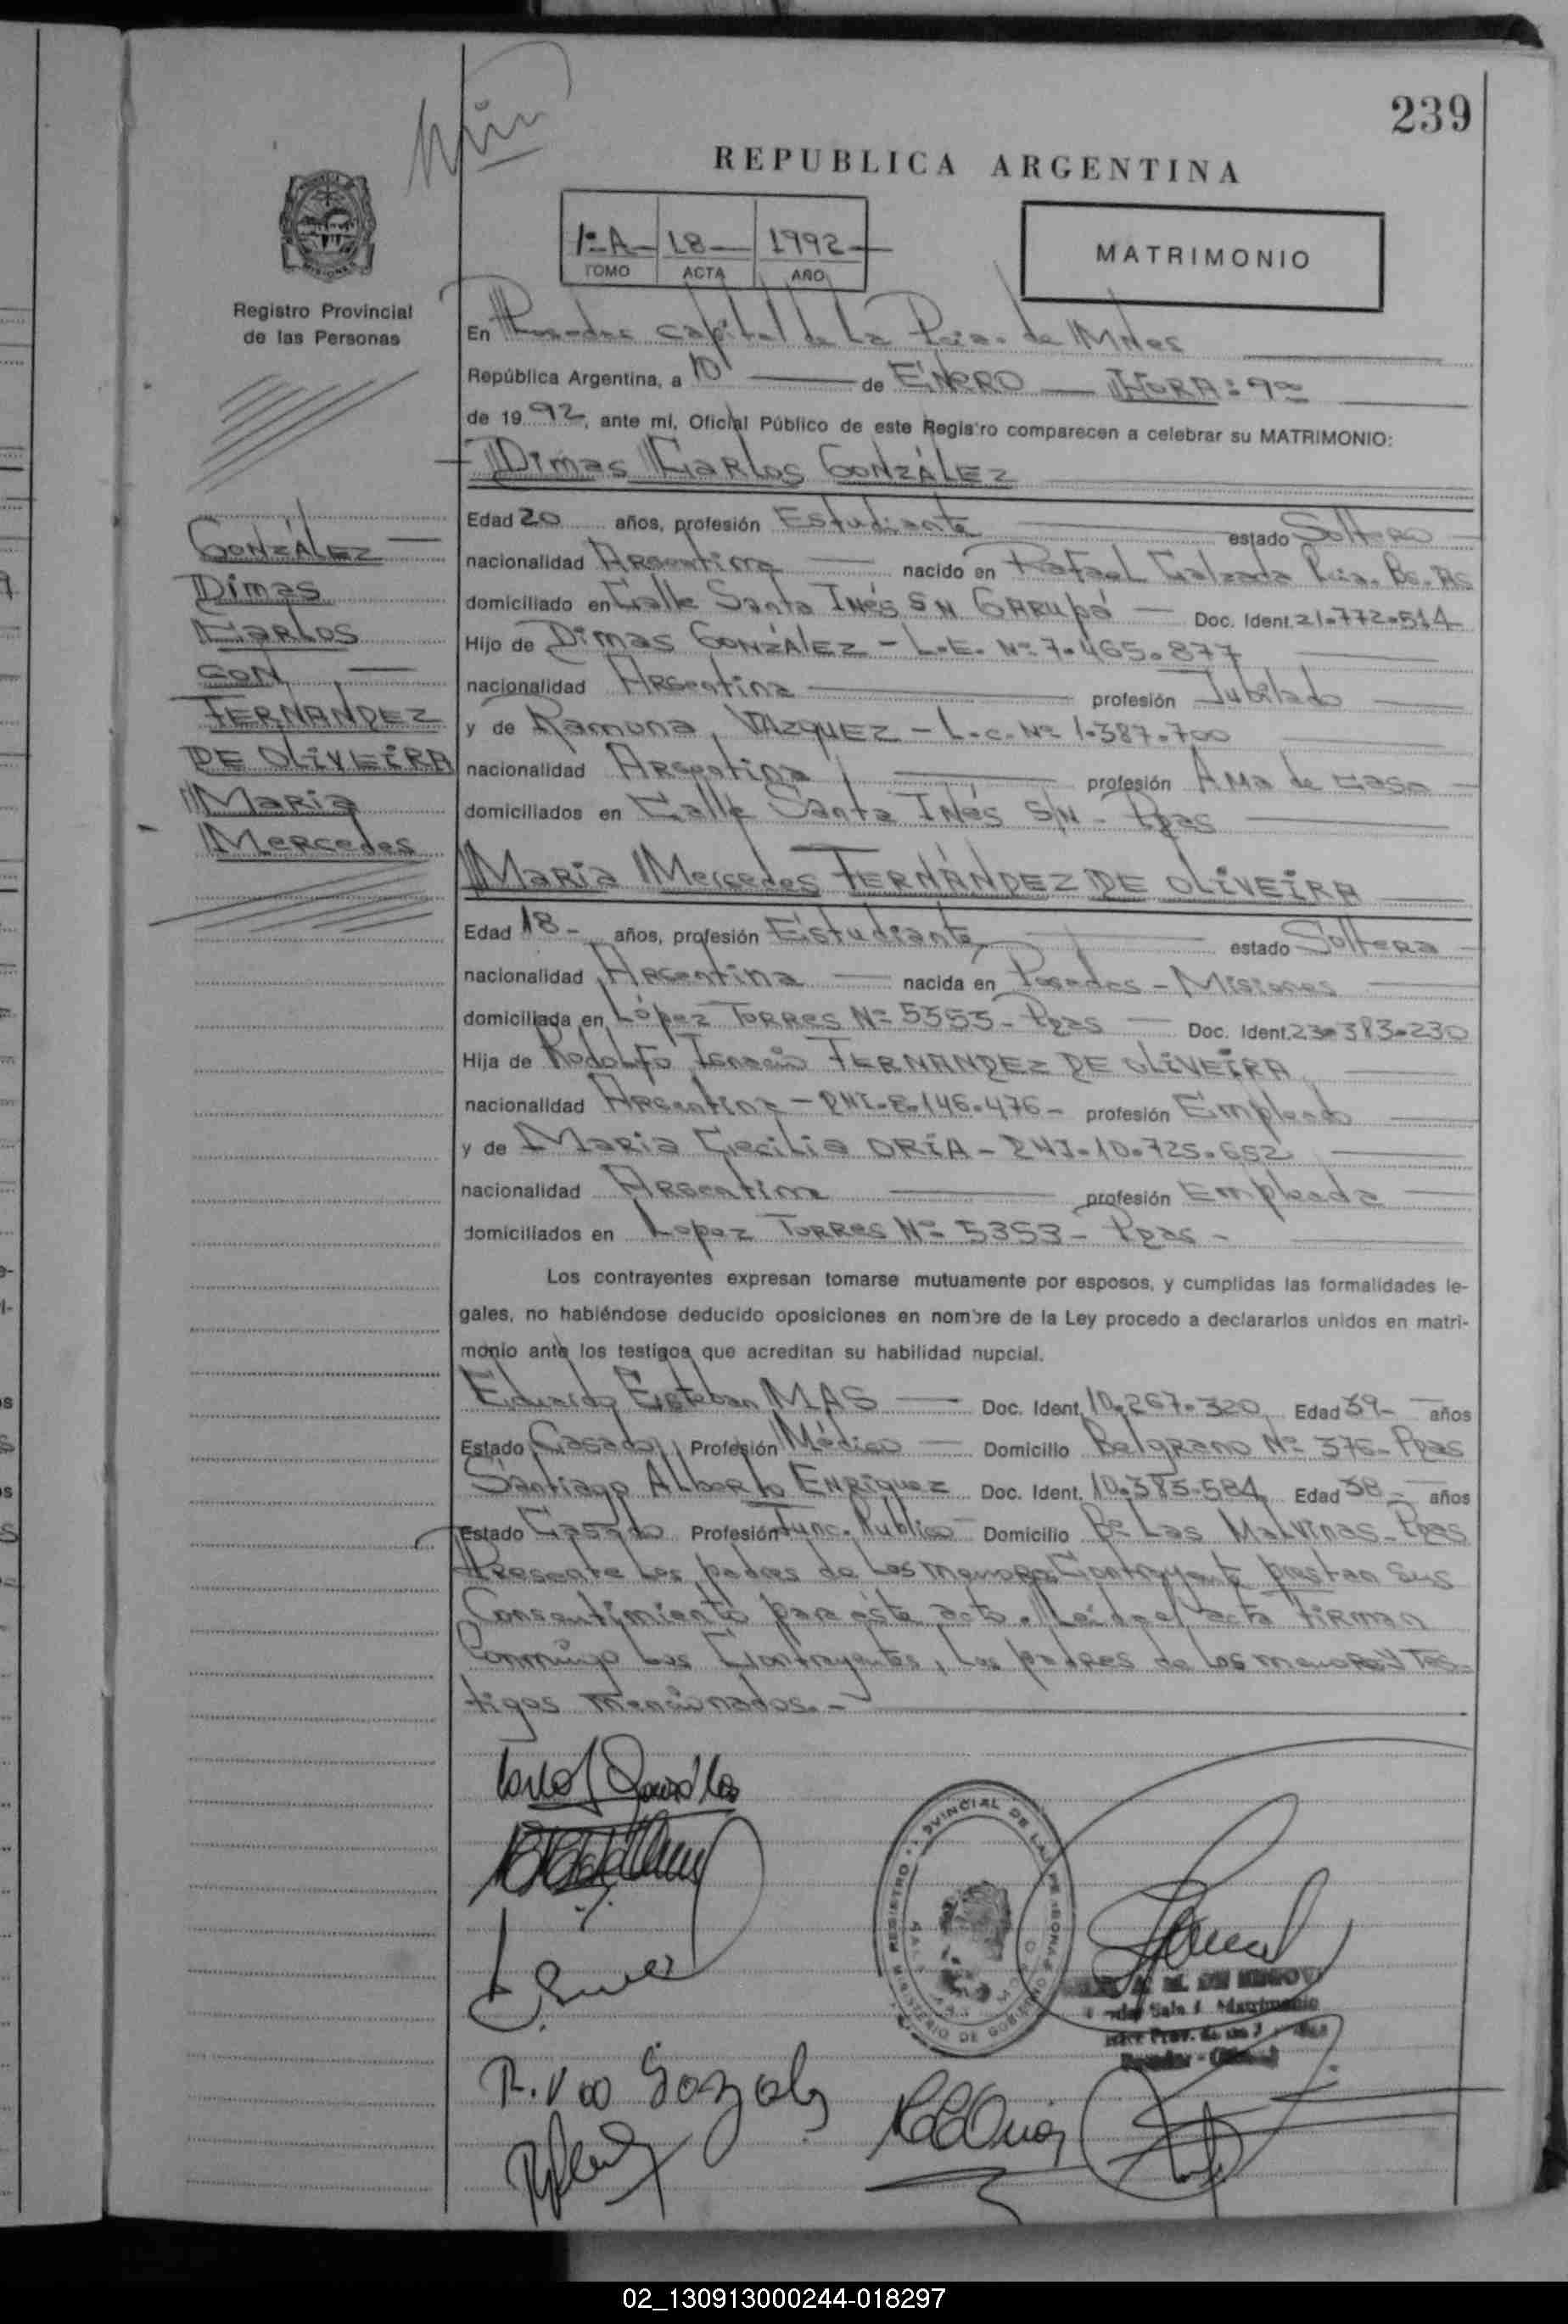 239
REPUBLICA ARGENTINA
1º A 18 1992
TOMO ACTA AÑO
MATRIMONIO
Registro Provincial
de las Personas
En Posadas capital de La Pcia. de Mnes
República Argentina, a 10 de ENERO HORA: 9
de 1992, ante mí, Oficial Público de este Registro comparecen a celebrar su MATRIMONIO:
Dimas Carlos GONZÁLEZ
Edad 20 años, profesión Estudiante estado Soltero
nacionalidad Argentina nacido en Rafael Calzada Pcia. Bs. As
domiciliado en Calle Santa Inés S/N GARUPÁ Doc. Ident. 21.772.514
Hijo de Dimas GONZÁLEZ - L.E. Nº 7.465.877
nacionalidad Argentina profesión Jubilado
y de Ramona VAZQUEZ - L.C. Nº 1.387.700
nacionalidad Argentina profesión Ama de casa
domiciliados en Calle Santa Inés S/N - Pdas
GONZÁLEZ
Dimas
Carlos
CON
FERNANDEZ
DE OLIVEIRA
María
Mercedes
María Mercedes FERNÁNDEZ DE OLIVEIRA
Edad 18- años, profesión Estudiante estado Soltera
nacionalidad Argentina nacida en Posadas - Misiones
domiciliada en López Torres Nº 5353 - Pdas Doc. Ident. 23.383.230
Hija de Rodolfo Ignacio FERNANDEZ DE OLIVEIRA
nacionalidad Argentina - DNI.8.146.476 - profesión Empleado
y de María Cecilia ORÍA - DNI.10.725.652
nacionalidad Argentina profesión Empleada
domiciliados en Lopez Torres Nº 5353 - Pdas -
Los contrayentes expresan tomarse mutuamente por esposos, y cumplidas las formalidades le-
gales, no habiéndose deducido oposiciones en nombre de la Ley procedo a declararlos unidos en matri-
monio ante los testigos que acreditan su habilidad nupcial.
Eduardo Esteban MAS Doc. Ident. 10.267.320 Edad 39- años
Estado Casado Profesión Médico Domicilio Belgrano Nº 376 - Pdas
Santiago Alberto ENRíquez Doc. Ident. 10.385.584 Edad 38- años
Estado Casado Profesión Func. Público Domicilio Bº Las Malvinas - Pdas
Presente los padres de los menores Contrayente prestan sus
Consentimiento para éste acto. Leída el acta firman
Conmigo los Contrayentes, los padres de los menores y tes-
tigos mencionados.-
REGISTRO PROVINCIAL DE LAS PERSONAS
MINISTERIO DE GOBIERNO
02_130913000244-018297